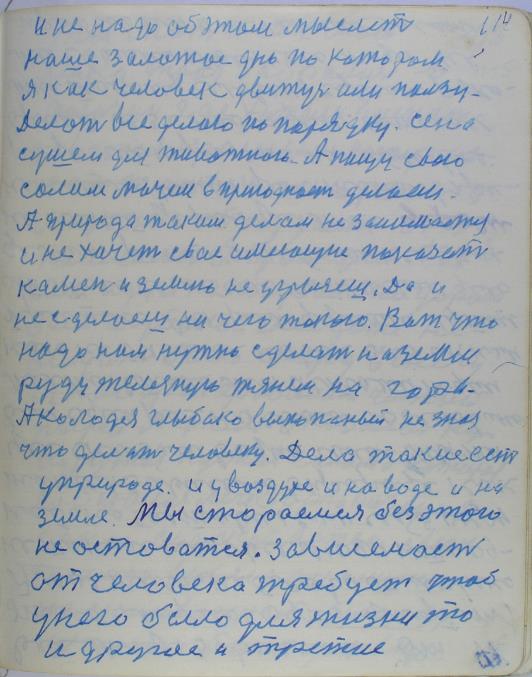 114
и не надо об этом мыслет
наше золотое дно по котором
я как человек движус или ползу-
Делат все делаю по порядку. сена
сушем для животного- А пищу свою
солим мочем в пригодност делаем.
А природа таким делам не занимается
и не хочет свае имеющие показат
камен и землю не угрызещ. Да и
не сделаещ ни чего такого. Вот что
надо нам нужно сделат на земли
руду железную тянем на гора-
А колодез глыбако выкопаный не зная
что делат человеку. Дела такие ест
у природе. и у воздухе и на воде и на
земле. Мы стораемся без этого
не остоватся. Зависемаст
от человека требует чтоб
у него было для жизни то
и другое и третие